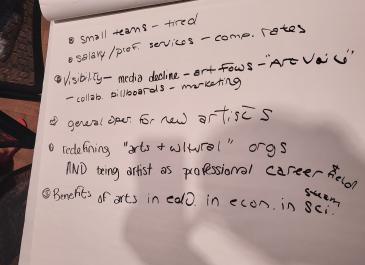 small teams - tired
salary/prof. services - comp. rates
Visibility - media decline - art focus - "Art Voice"
- collab. billboards - marketing
general oper. for new artists
redefining "arts + cultural" orgs
AND being artist as professional career field
Benefits of arts in ed. in econ. in sci.